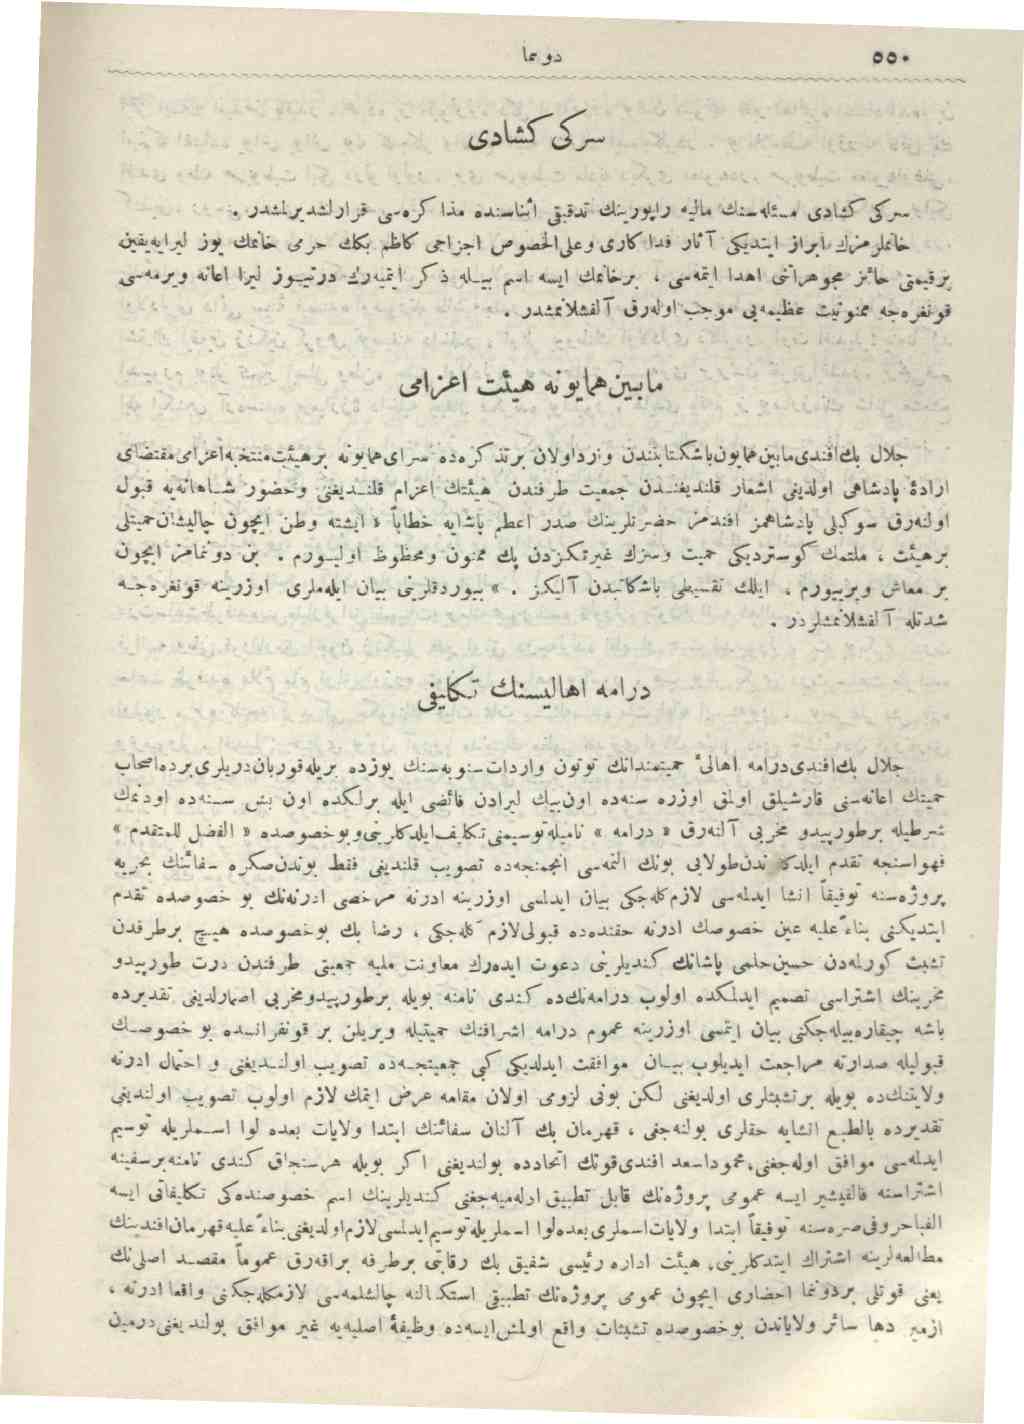 ٥٥٠
دونما
سركی كشادی
سركی كشادی مسئله‌سنك مالیه راپورینك تدقیقی اثناسنده مذا كره‌سی قرارلشدیرلمشدر .
خانملرمزك ابراز ایتدیكی آثار فدا كاری وعلی‌الخصوص اجزاجی كاظم بكك حرمی خانمك یوز لیرایه‌یقین
برقیمتی حائز مجوهراتنی اهدا ایتمه‌سی ، برخانمك ایسه اسم بیله ذكر ایتمیه‌رك درتیوز لیرا اعانه ویرمه‌سی
قونغره‌جه ممنونیت عظیمه‌یی موجب اوله‌رق آلقشلانمشدر .
مابین‌همایونه هیئت اعزامی
جلال بك‌افندی‌مابین‌همایون‌باشكتابتندن وارداولان برتذكره‌ده سرای‌همایونه برهیئت‌منتخبه‌اعزامی‌مقتضای
ارادۀ پادشاهی اولدیغنی اشعار قلندیغندن جمعیت طرفندن هیئتك اعزام قلندیغنی وحضور شاهانه‌یه قبول
اولنه‌رق سوكیلی پادشاهمز افندمز حضرتلرینك صدر اعظم پاشایه خطاباً « ایشته وطن ایچون چالیشان‌حمیتلی
برهیئت ، ملتمك كوستردیكی حمیت وسزك غیرتكزدن پك ممنون ومحظوظ اولیورم . بن دونمامز ایچون
بر معاش ویرییورم ، ایللك تقسیطی باشكاتبدن آلیكز . » بیوردقلرینی بیان ایله‌ملری اوزرینه قونغره‌جه
شدتله آلقشلانمشلردر .
درامه اهالیسنك تكلیفی
جلال بك‌افندی‌درامه اهالیٔ حمیتمندانك توتون واردات‌سنویه‌سنك یوزده بریله‌قوربان‌دریلری‌برده‌اصحاب
حمیتك اعانه‌سنی قارشیلق اولمق اوزره سنه‌ده اون‌بیك لیرادن فائضی ایله برلكده اون بش سنه‌ده اودنمك
شرطیله برطورپیدو مخربی آلنه‌رق « درامه » نامیله‌توسیمنی‌تكلیف‌ایلدكلرینی‌وبوخصوصده « الفضل للمتقدم »
فهواسنجه تقدم ایلدكلرندن‌طولایی بونك التمه‌سی انجمنجه‌ده تصویب قلندیغی فقط بوندن‌صكره سفائنك بحریه
پروژه‌سنه توفیقاً انشا ایدلمه‌سی لازم‌كله‌جكی بیان ایدلمسی اوزرینه ادرنه مرخصی ادرنه‌نك بو خصوصده تقدم
ایتدیكنی بناءً علیه عین خصوصك ادرنه حقنده‌ده قبولی‌لازم كله‌جكی ، رضا بك بوخصوصده هیچ برطرفدن
تشبث كورلمه‌دن حسین‌حلمی پاشانك كندیلرینی دعوت ایده‌رك معاونت ملیه جمعیتی طرفندن درت طورپیدو
مخربنك اشتراسی تصمیم ایدلمكده اولوب درامه‌نك‌ده كندی نامنه بویله برطورپیدومخربی اصمارلدیغی تقدیرده
باشه چیقاره‌بیله‌جكنی بیان ایتمسی اوزرینه عموم درامه اشرافنك حمیتیله ویریلن بر قونفرانسده بو خصوصك
قبولیله صدارته مراجعت ایدیلوب بیان موافقت ایدلدیكی كبی جمعیتجه‌ده تصویب اولندیغنی و احتمال ادرنه
ولایتنك‌ده بویله برتشبثلری اولدیغنی لكن بونی لزومی اولان مقامه عرض ایتمك لازم اولوب تصویب اولندیغی
تقدیرده بالطبع انشایه حقلری بولنه‌جغی ، قهرمان بك آلنان سفائنك ابتدا ولایات بعده لوا اسملریله توسیم
ایدلمه‌سی موافق اوله‌جغنی،محموداسعد افندی‌قوتك اتحادده بولندیغنی اكر بویله هرسنجاق كندی نامنه‌برسفینه
اشتراسنه قالقیشیر ایسه عمومی پروژه‌نك قابل تطبیق اوله‌میه‌جغنی كندیلرینك اسم خصوصنده‌كی تكلیفاتی ایسه
الفباحروفی‌صره‌سنه توفیقاً ابتدا ولایات‌اسملری‌بعده‌لوا اسملریله‌توسیم‌ایدلمسی‌لازم‌اولدیغنی‌بناءً علیه‌قهرمان‌افندینك
مطالعه‌لرینه اشتراك ایتدكلرینی، هیئت اداره رئیسی شفیق بك رقابتی برطرفه براقه‌رق عموماً مقصد اصلی‌نك
یعنی قوتلی بردونما احضاری ایچون عمومی پروژه‌نك تطبیقی استكمالنه چالشلمه‌سی لازم‌كله‌جكنی واقعا ادرنه ،
ازمیر دها سائر ولایاتدن بوخصوصده تشبثات واقع اولمش‌ایسه‌ده وظیفۀ اصلیه‌یه غیر موافق بولندیغنی‌درمین